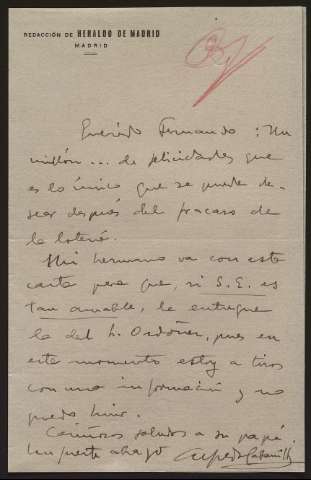 REDACCIÓN DE HERALDO DE MADRID
MADRID
Querido Fernando: Un
millón... de felicidades que
es lo único que se puede de-
sear después del fracaso de
la lotería.
Mi hermano va con esta
carta para que, si S. E. es
tan amable, le entregue
la del Sr. Ordóñez, pues en
este momento estoy a tiros
con una información y no
puedo huir.
Cariñosos saludos a su papá.
Un fuerte abrazo Alfredo Cabanillas